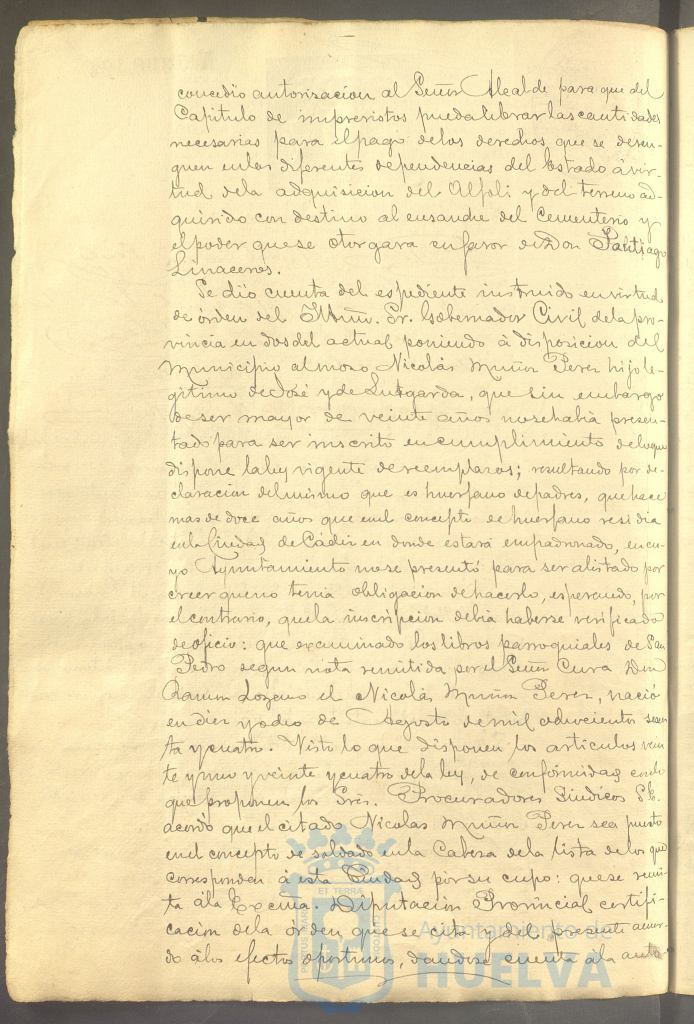 concedió autorización al Señor Alcalde para que del
Capitulo de imprevistos pueda librar las cantidades
necesarias para el pago de los derechos que se deven-
guen en las diferentes dependencias del Estado á vir-
tud de la adquisicion del Alfoli y del terreno ad-
quirido con destino al ensanche del Cementerio y
el poder que se otorgara en favor de Don Santiago
Linaceros.
Se dió cuenta del espediente instruido en virtud
de órden del Iltmo. Sr. Gobernador Civil de la pro-
vincia en dos del actual poniendo á disposicion del
Municipio al mozo Nicolás Muñoz Perez hijo le-
gitimo de José y de Lutgarda, que sin embargo
de ser mayor de veinte años no se habia presen-
tado para ser inscrito en cumplimiento de lo que
dispone la ley vigente de reemplazos; resultando por de-
claracion del mismo que es huerfano de padres, que hace
mas de doce años que en el concepto de huerfano residia
en la Ciudad de Cádiz en donde estará empadronado, en cu-
yo Ayuntamiento no se presentó para ser alistado por
creer que no tenia obligacion de hacerlo, esperando, por
el contrario, que la inscripcion debia haberse verificado
de oficio: que examinado los libros parroquiales de San
Pedro segun nota remitida por el Señor Cura Don
Ramon Lozano el Nicolás Muñoz Perez, nació
en diez y ocho de Agosto de mil ochocientos sesen
ta y cuatro. Visto lo que disponen los articulos vein
te y uno y veinte y cuatro de la ley, de conformidad con lo
que proponen los Sres. Procuradores Sindicos S.E.
acordó que el citado Nicolas Muñoz Perez sea puesto
en el concepto de soldado en la Cabeza de la lista de los que
corresponden á esta Ciudad por su cupo: que se remi-
ta á la Excma. Diputacion Provincial certifi-
cacion de la órden que se cita y del presente acuer-
do á los efectos oportunos, dandose cuenta á la auto-
Ayuntamiento de
HUELVA